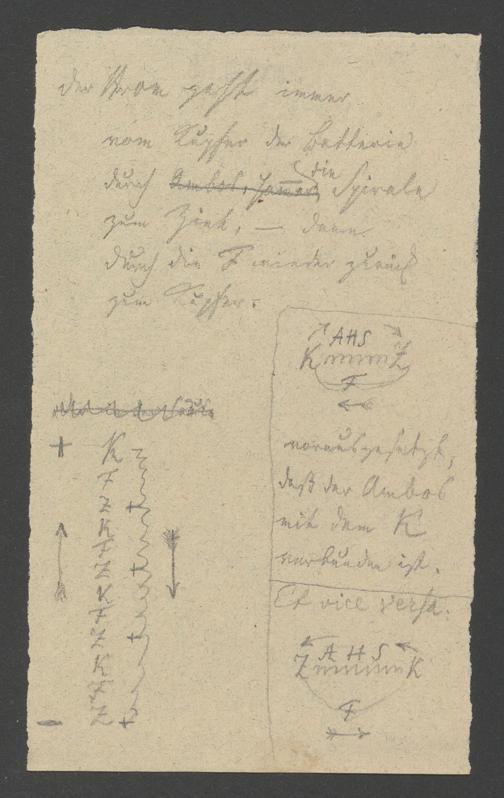 der Strom geht immer
vom Kupfer der Batterie
durch Ambos, Hammer die Spirale
zum Zink, — dann
durch die F wieder zurück
zum Kupfer.
AHS
K Z
F
vorausgesetzt,
daß der Ambos
mit dem K
verbunden ist.
Et vice versa.
A H S
Z K
F
+ K
Z
Z
K
Z
K
Z
−
+